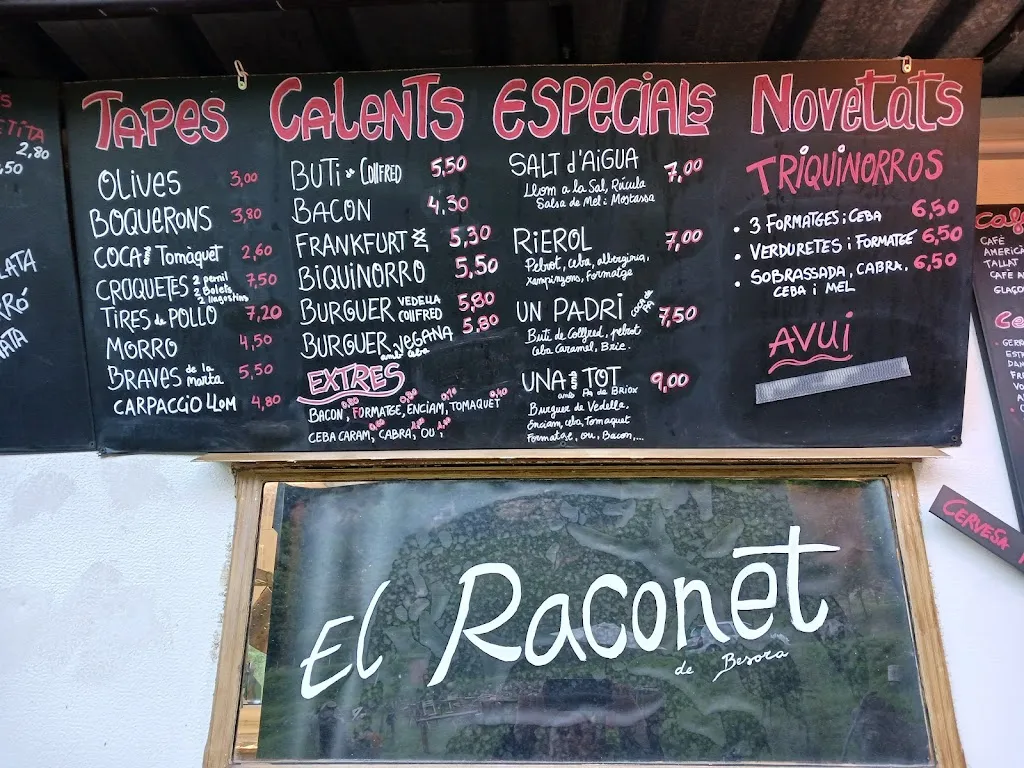 TAPES
OLIVES 3,00
BOQUERONS 3,80
COCA amb Tomàquet 2,60
CROQUETES 2 pernil 2 Bolets 2 llagostins 7,50
TIRES de POLLO 7,20
MORRO 4,50
BRAVES de la Marta 5,50
CARPACCIO LLOM 4,80
CALENTS
BUTI de COllFRED 5,50
BACON 4,30
FRANKFURT 5,30
BIQUINORRO 5,50
BURGUER VEDELLA COllFRED 5,80
BURGUER VEGANA amb Ceba 5,80
EXTRES
BACON, FORMATGE, ENCIAM, TOMAQUET
CEBA CARAM, CABRA, OU,
ESPECIALS
SALT d'AiGUA 7,00
Llom a la Sal, Rúcula
Salsa de Mel i Mostassa
RiEROL 7,00
Pebrot, ceba, albergínia,
Xampinyons, Formatge
UN PADRÍ COCA DE PA 7,50
Buti de Collfred, pebrot
Ceba Caramel, Bric.
UNA amb TOT 9,00
amb Pa de Briox
Burguer de Vedella,
Enciam, ceba, Tomaquet
Formatge, OU, Bacon,...
NOVETATS
TRIQUINORROS
• 3 FORMATGES i CEBA 6,50
• VERDURETES i FORMATGE 6,50
• SOBRASSADA, CABRA, 6,50
CEBA i MEL
AVUI
ETITA
2,80
,50
LATA
RRÓ
NATA
CAFÉ
AMERICA
TALLAT
CAFE A
GLAÇO
CERVESA
El Raconet
de Besora